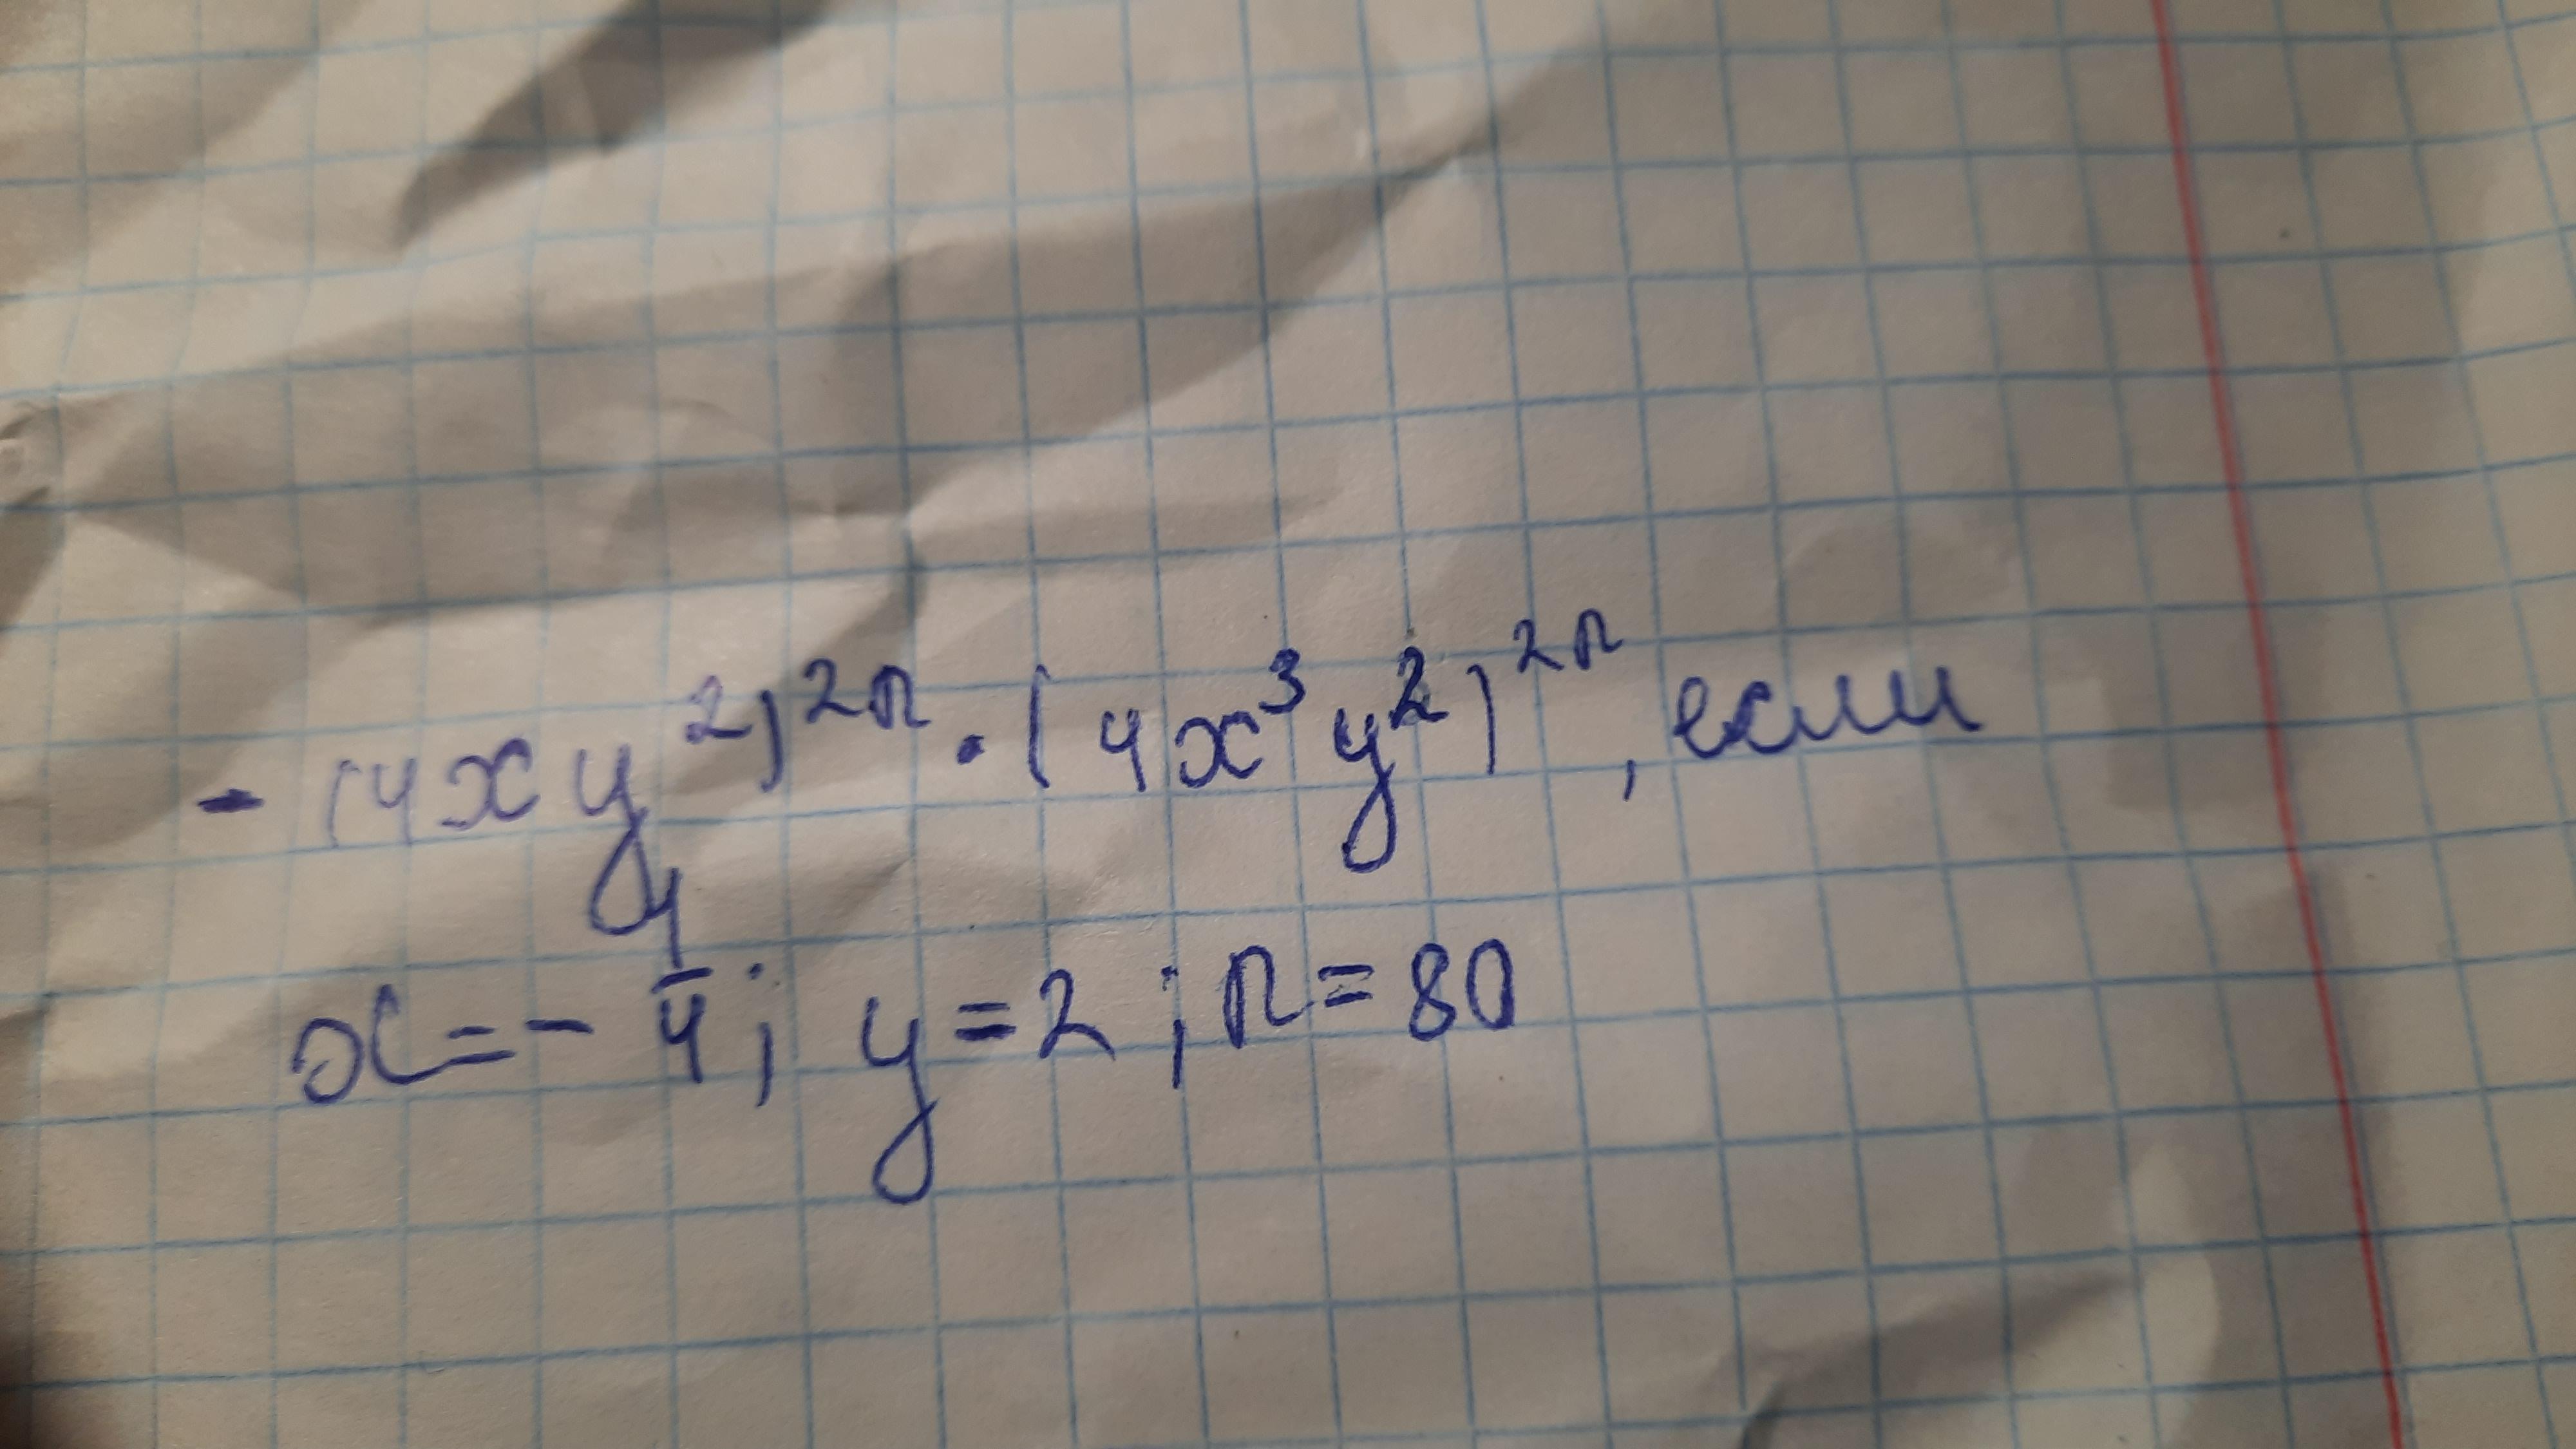 - (4xy²)²ⁿ · (4x³y²)²ⁿ, если
x = - 1/4; y = 2; n = 80